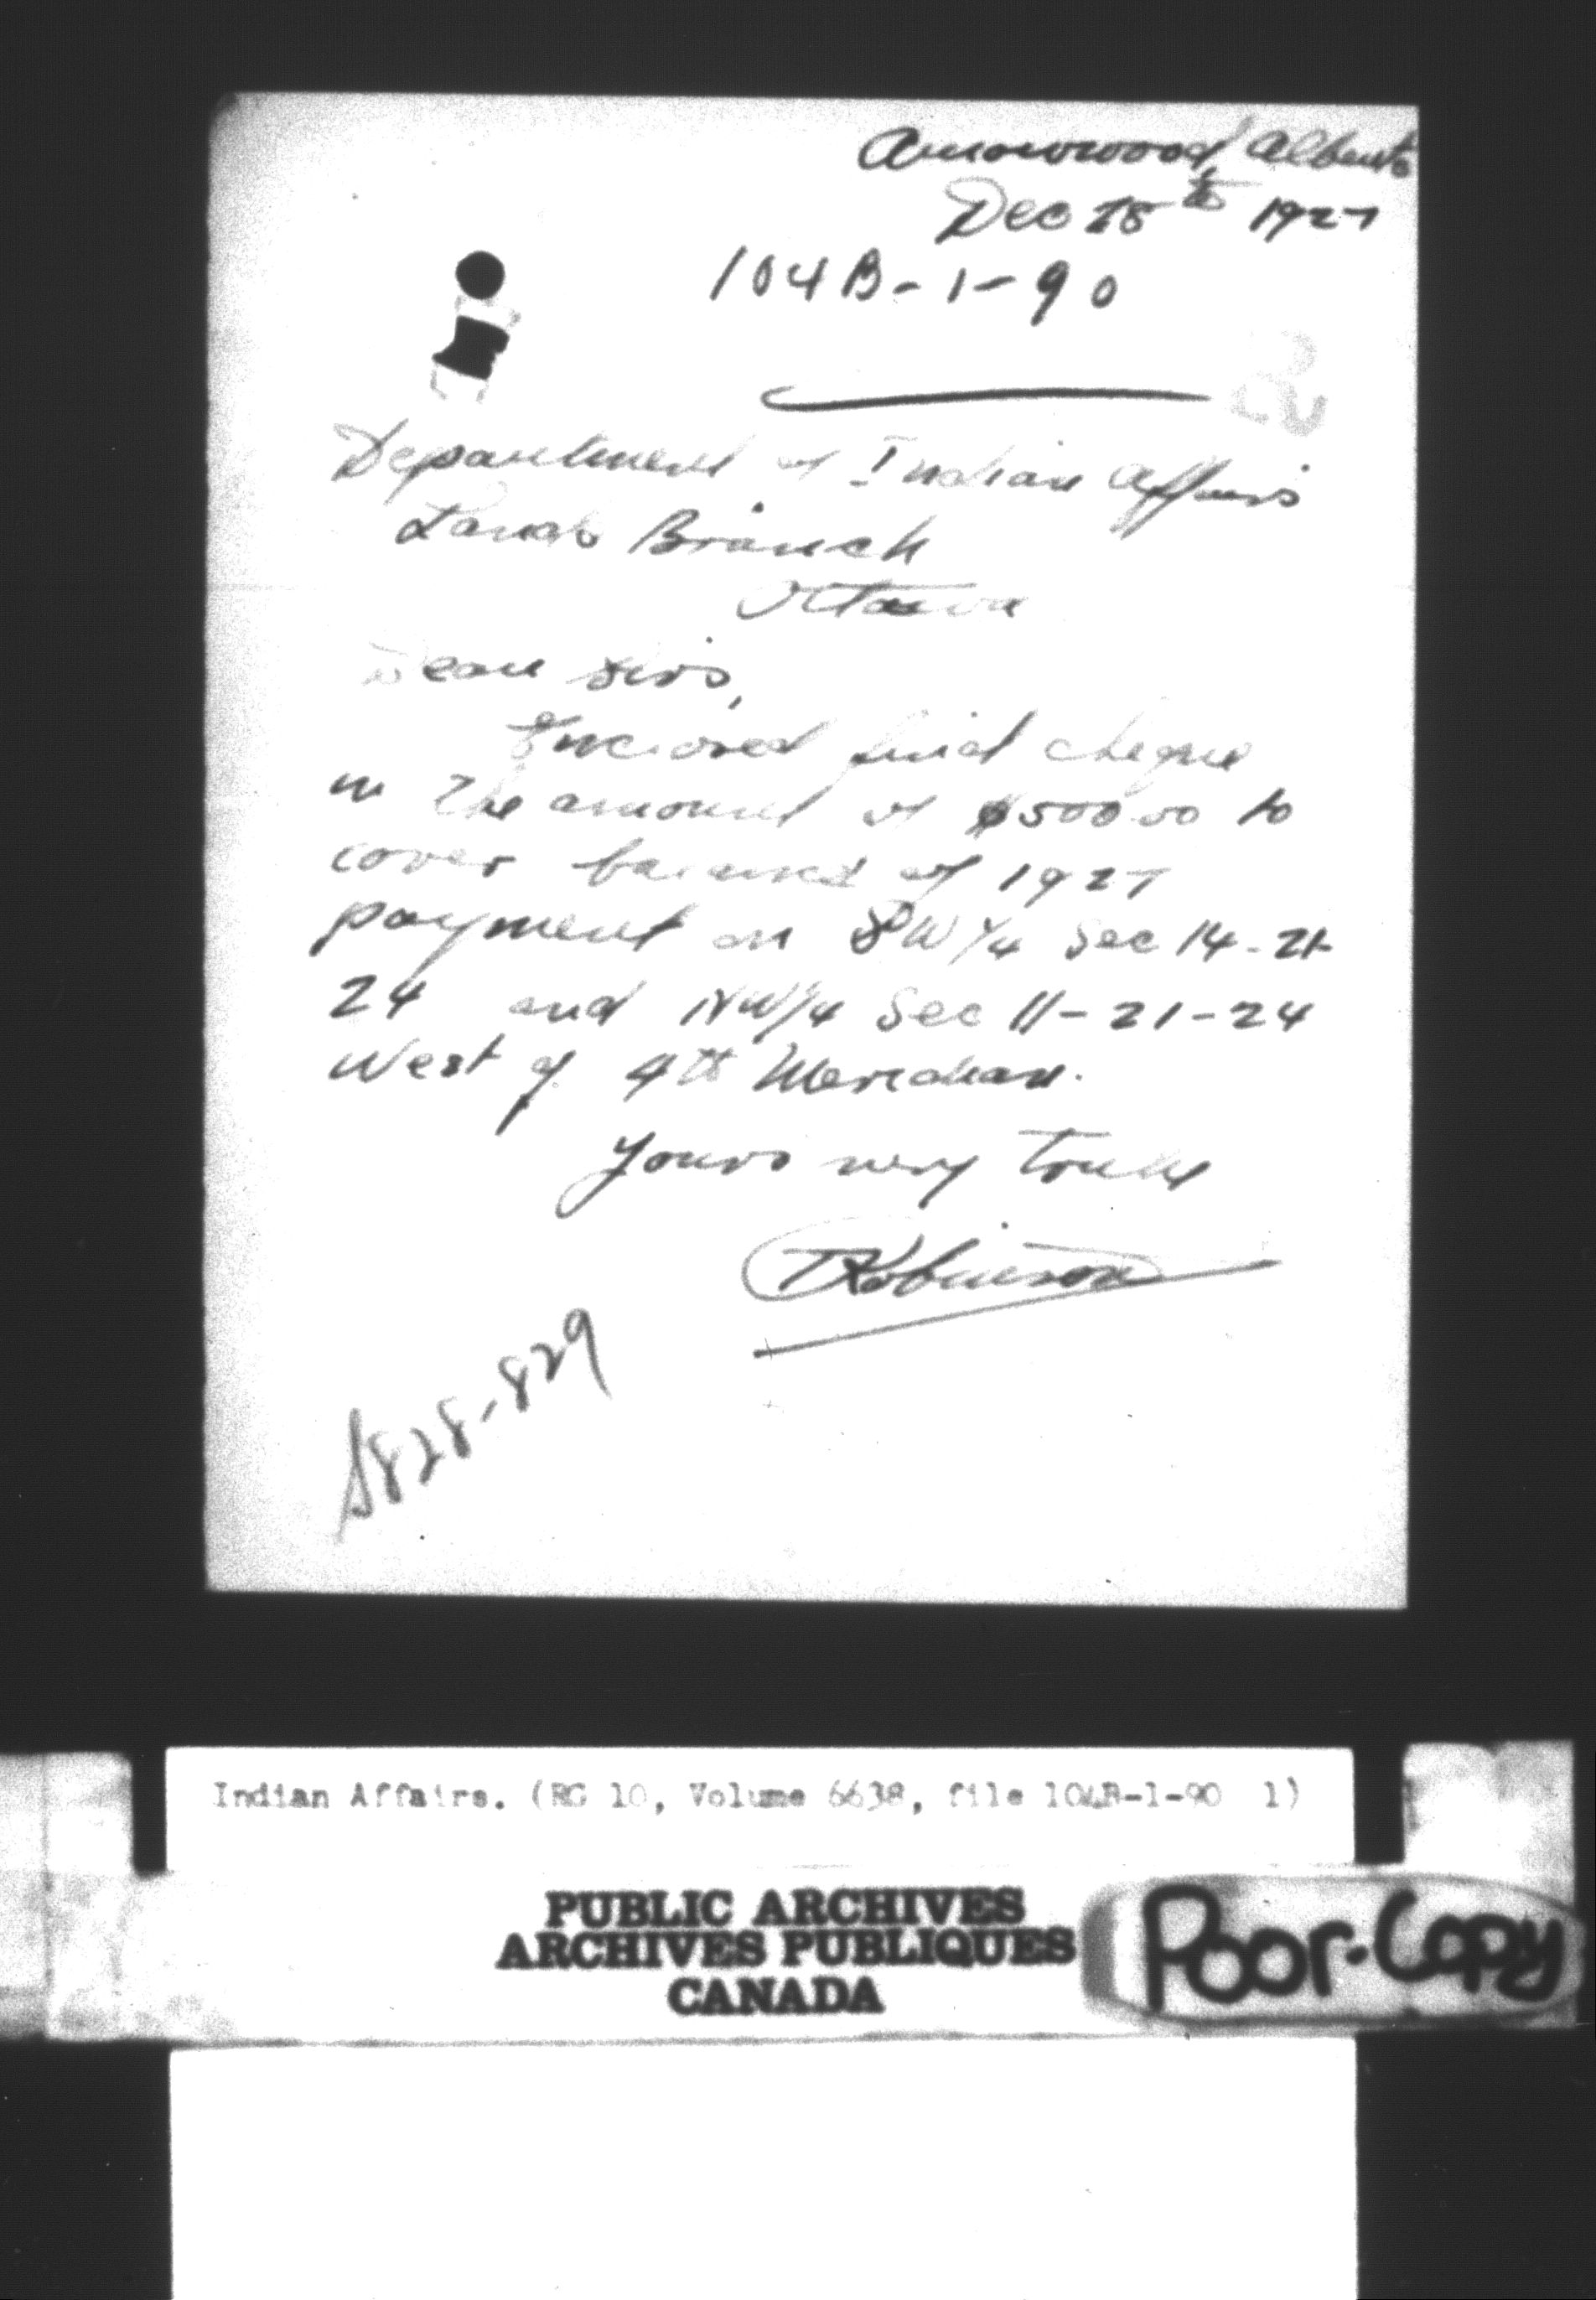 Arrowwood, Alberta
Dec 28th 1927
104B-1-90
Department of Indian Affairs
Lands Branch
Ottawa
Dear Sirs,
Enclosed find cheque
in the amount of $500.00 to
cover balance of 1927
payment on SW 1/4 Sec 14-21-
24 and NW 1/4 Sec 11-21-24
West of 4th Meridian.
Yours very truly
Robinson
S828-829
Indian Affairs. (RG 10, Volume 6638, file 104B-1-90 1)
PUBLIC ARCHIVES
ARCHIVES PUBLIQUES
CANADA
Poor-Copy